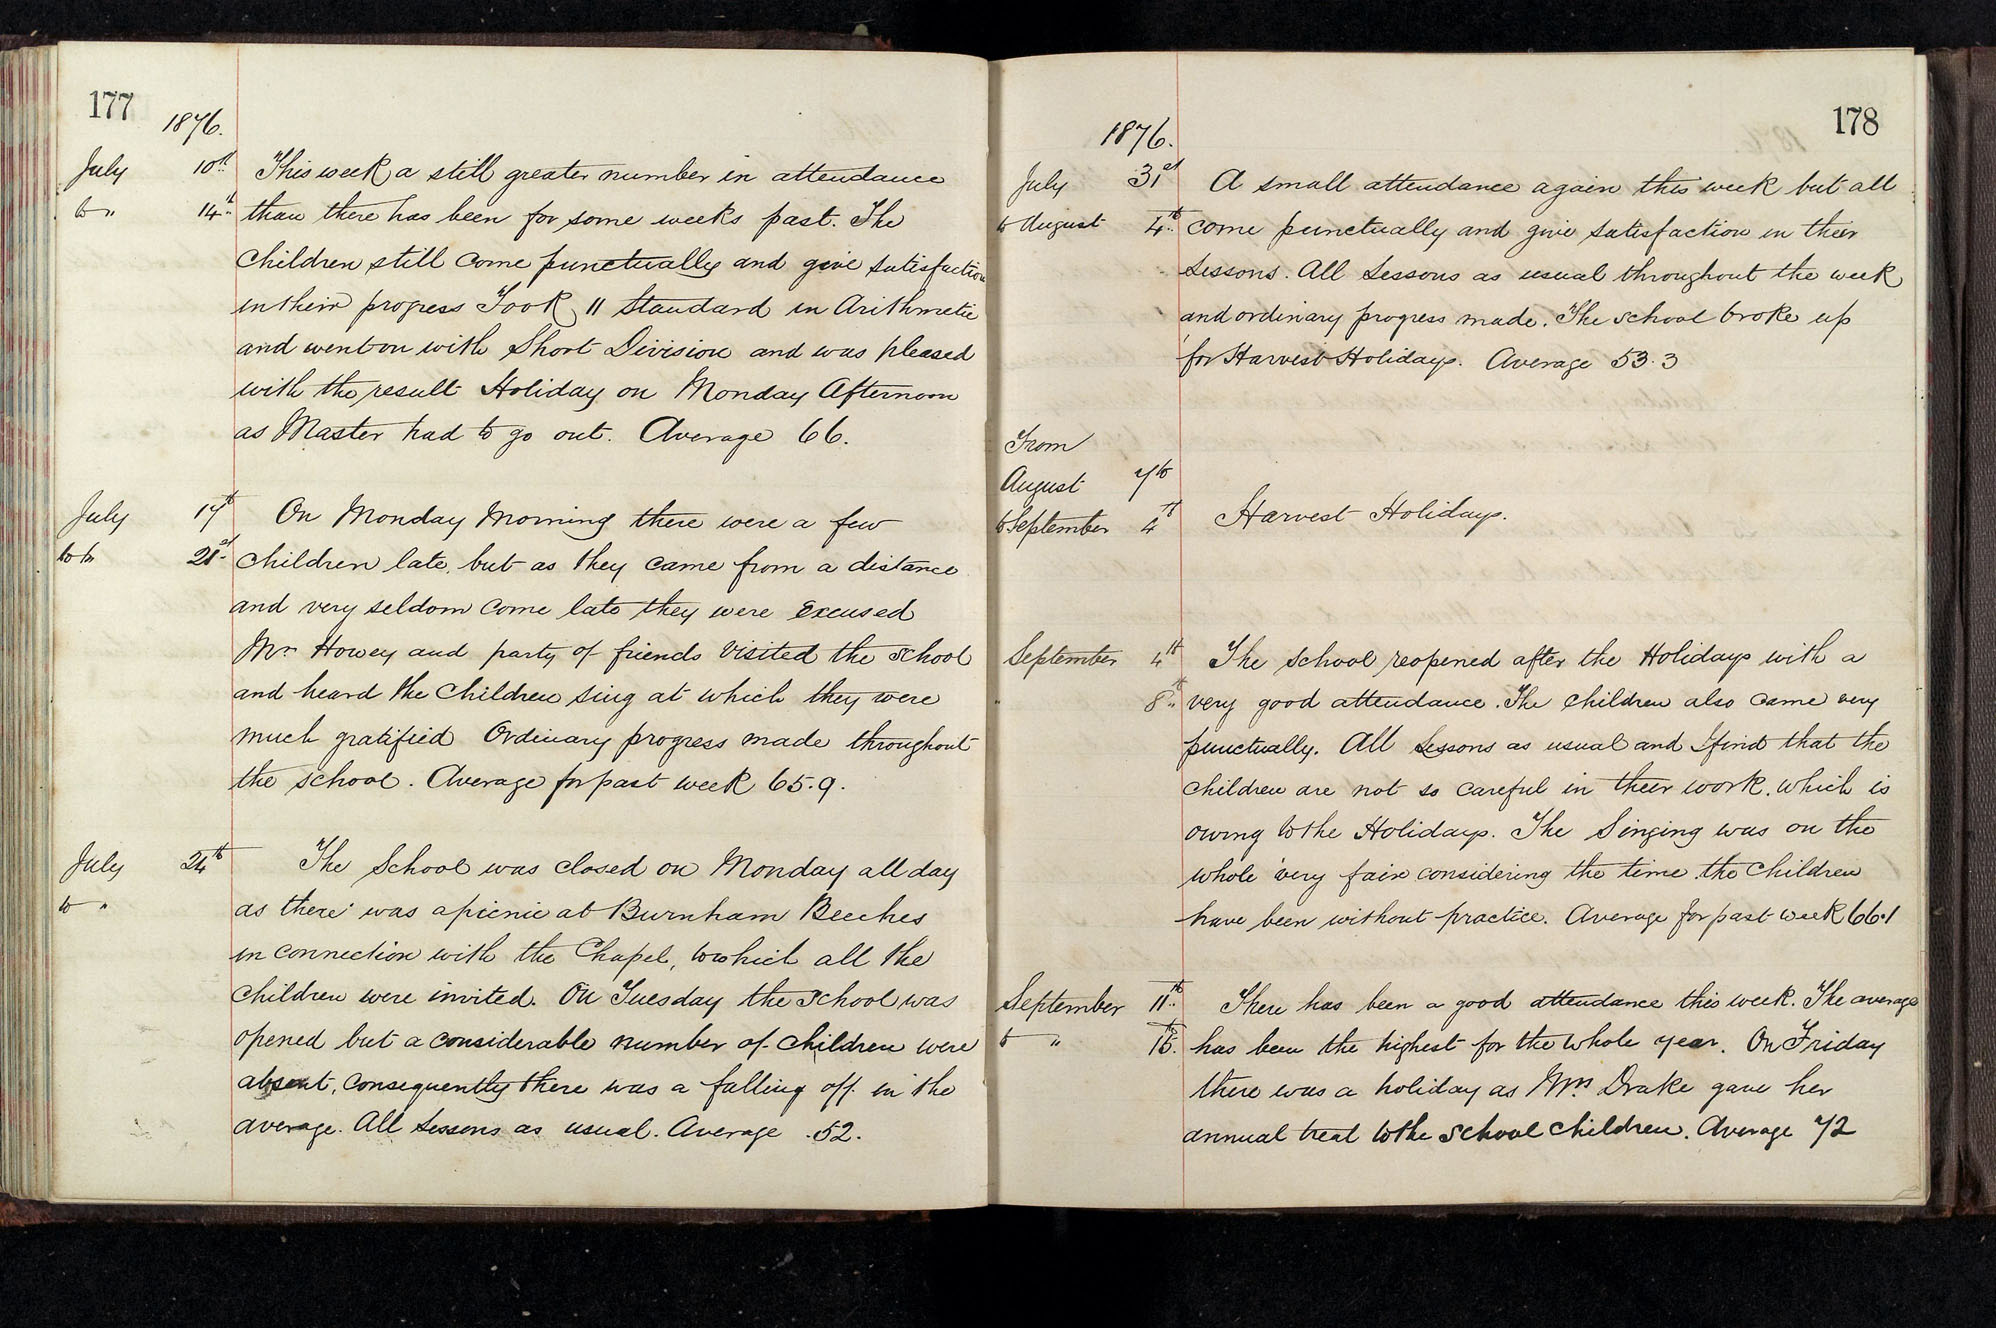 177
1876.
July 10th This week a still greater number in attendance
to " 14th than there has been for some weeks past. The
children still come punctually and give satisfaction
in their progress Took II Standard in Arithmetic
and went on with Short Division and was pleased
with the result Holiday on Monday Afternoon
as Master had to go out. Average 66.
July 17th On Monday Morning there were a few
to 21st children late, but as they came from a distance
and very seldom come late they were excused
Mr Howey and party of friends visited the school
and heard the children sing at which they were
much gratified Ordinary progress made throughout
the school. Average for past week 65.9.
July 24th The School was closed on Monday all day
to " as there was a picnic at Burnham Beeches
in connection with the Chapel, to which all the
children were invited. On Tuesday the school was
opened but a considerable number of children were
absent, consequently there was a falling off in the
average. All Lessons as usual. Average .52.
178
1876.
July 31st A small attendance again this week but all
to August 4th come punctually and give satisfaction in their
Lessons. All Lessons as usual throughout the week
and ordinary progress made. The school broke up
for Harvest Holidays. Average 53.3
From
August 7th
to September 4th Harvest Holidays.
September 4th The school reopened after the Holidays with a
" 8th very good attendance. The children also came very
punctually. All Lessons as usual and I find that the
children are not so careful in their work. which is
owing to the Holidays. The Singing was on the
whole very fair considering the time the children
have been without practice. Average for past week 66.1
September 11th There has been a good attendance this week. The average
to " 15th has been the highest for the whole year. On Friday
there was a holiday as Mrs Drake gave her
annual treat to the school children. Average 72